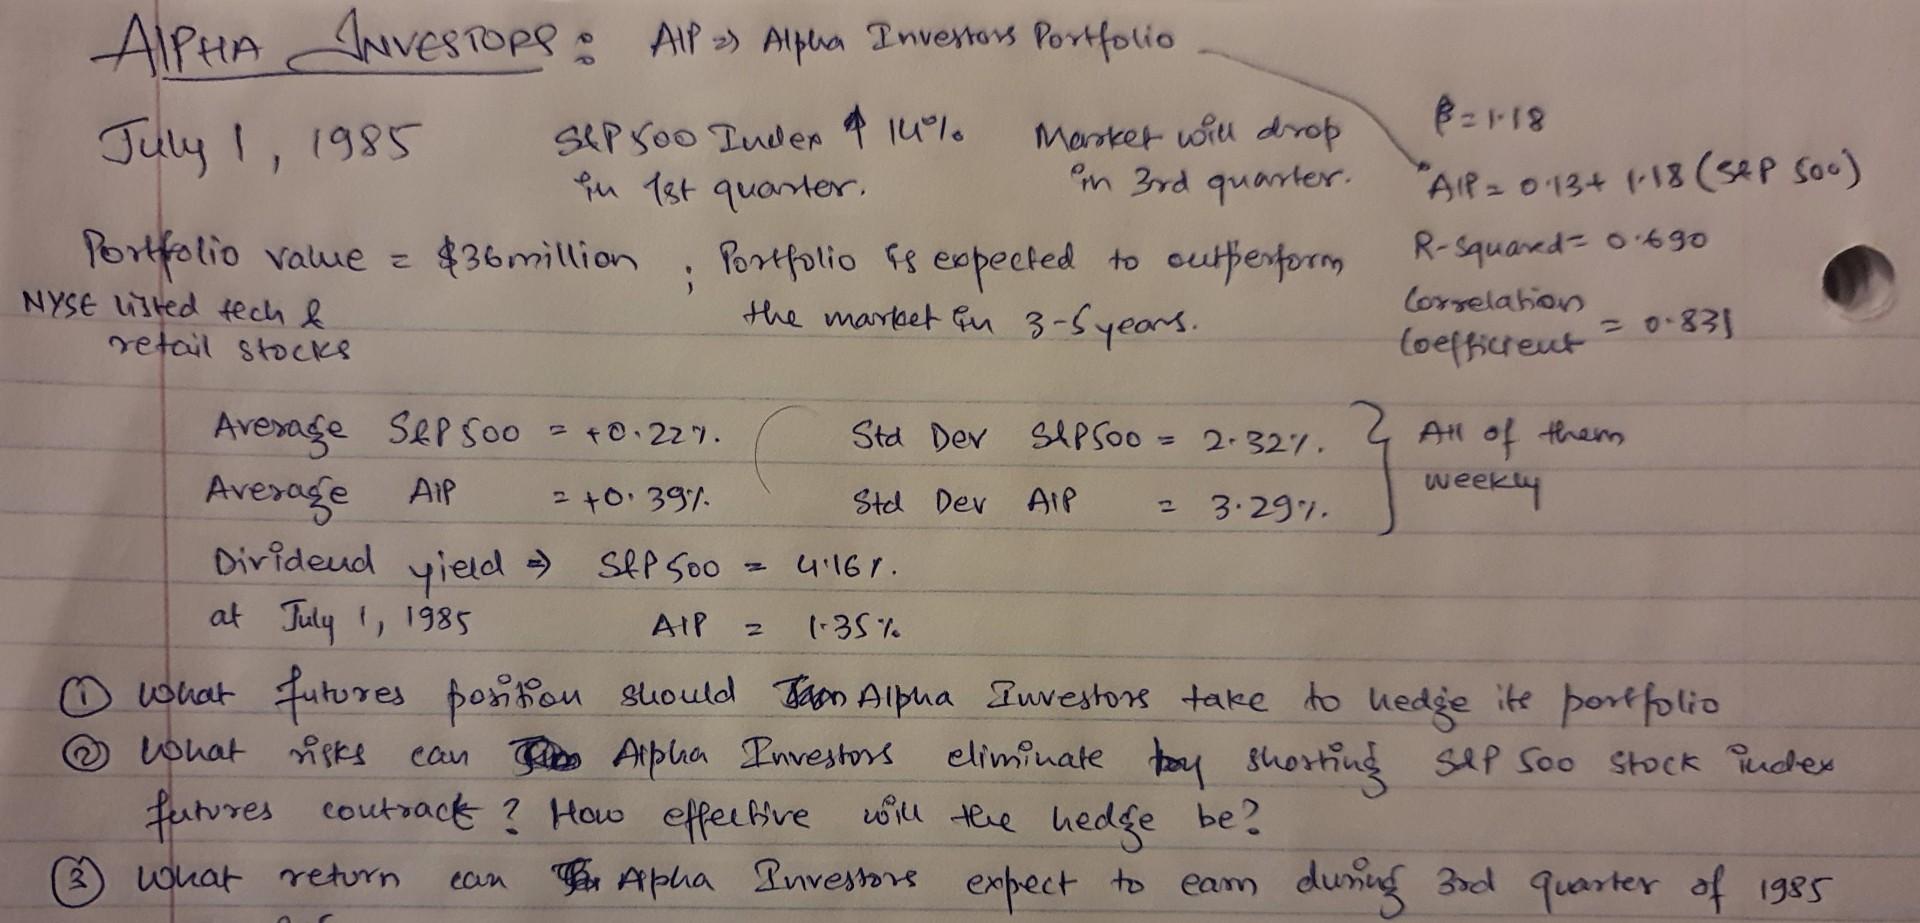 ALPHA INVESTORS: AIP => Alpha Investors Portfolio
July 1, 1985
S&P 500 Index ↑ 14%
in 1st quarter.
Market will drop
in 3rd quarter.
β = 1.18
AIP = 0.13 + 1.18 (S&P 500)
R-squared = 0.690
Correlation
Coefficient = 0.831
Portfolio value = $36 million ; Portfolio is expected to outperform
the market in 3-5 years.
NYSE listed tech &
retail stocks
Average S&P 500 = +0.22%.
Std Dev S&P 500 = 2.32%.
Average AIP = +0.39%.
Std Dev AIP = 3.29%.
} All of them
weekly
Dividend yield => S&P 500 = 4.16%.
at July 1, 1985 AIP = 1.35%
① What futures position should Alpha Investors take to hedge its portfolio
② What risks can Alpha Investors eliminate by shorting S&P 500 stock index
futures contract? How effective will the hedge be?
③ What return can Alpha Investors expect to earn during 3rd quarter of 1985